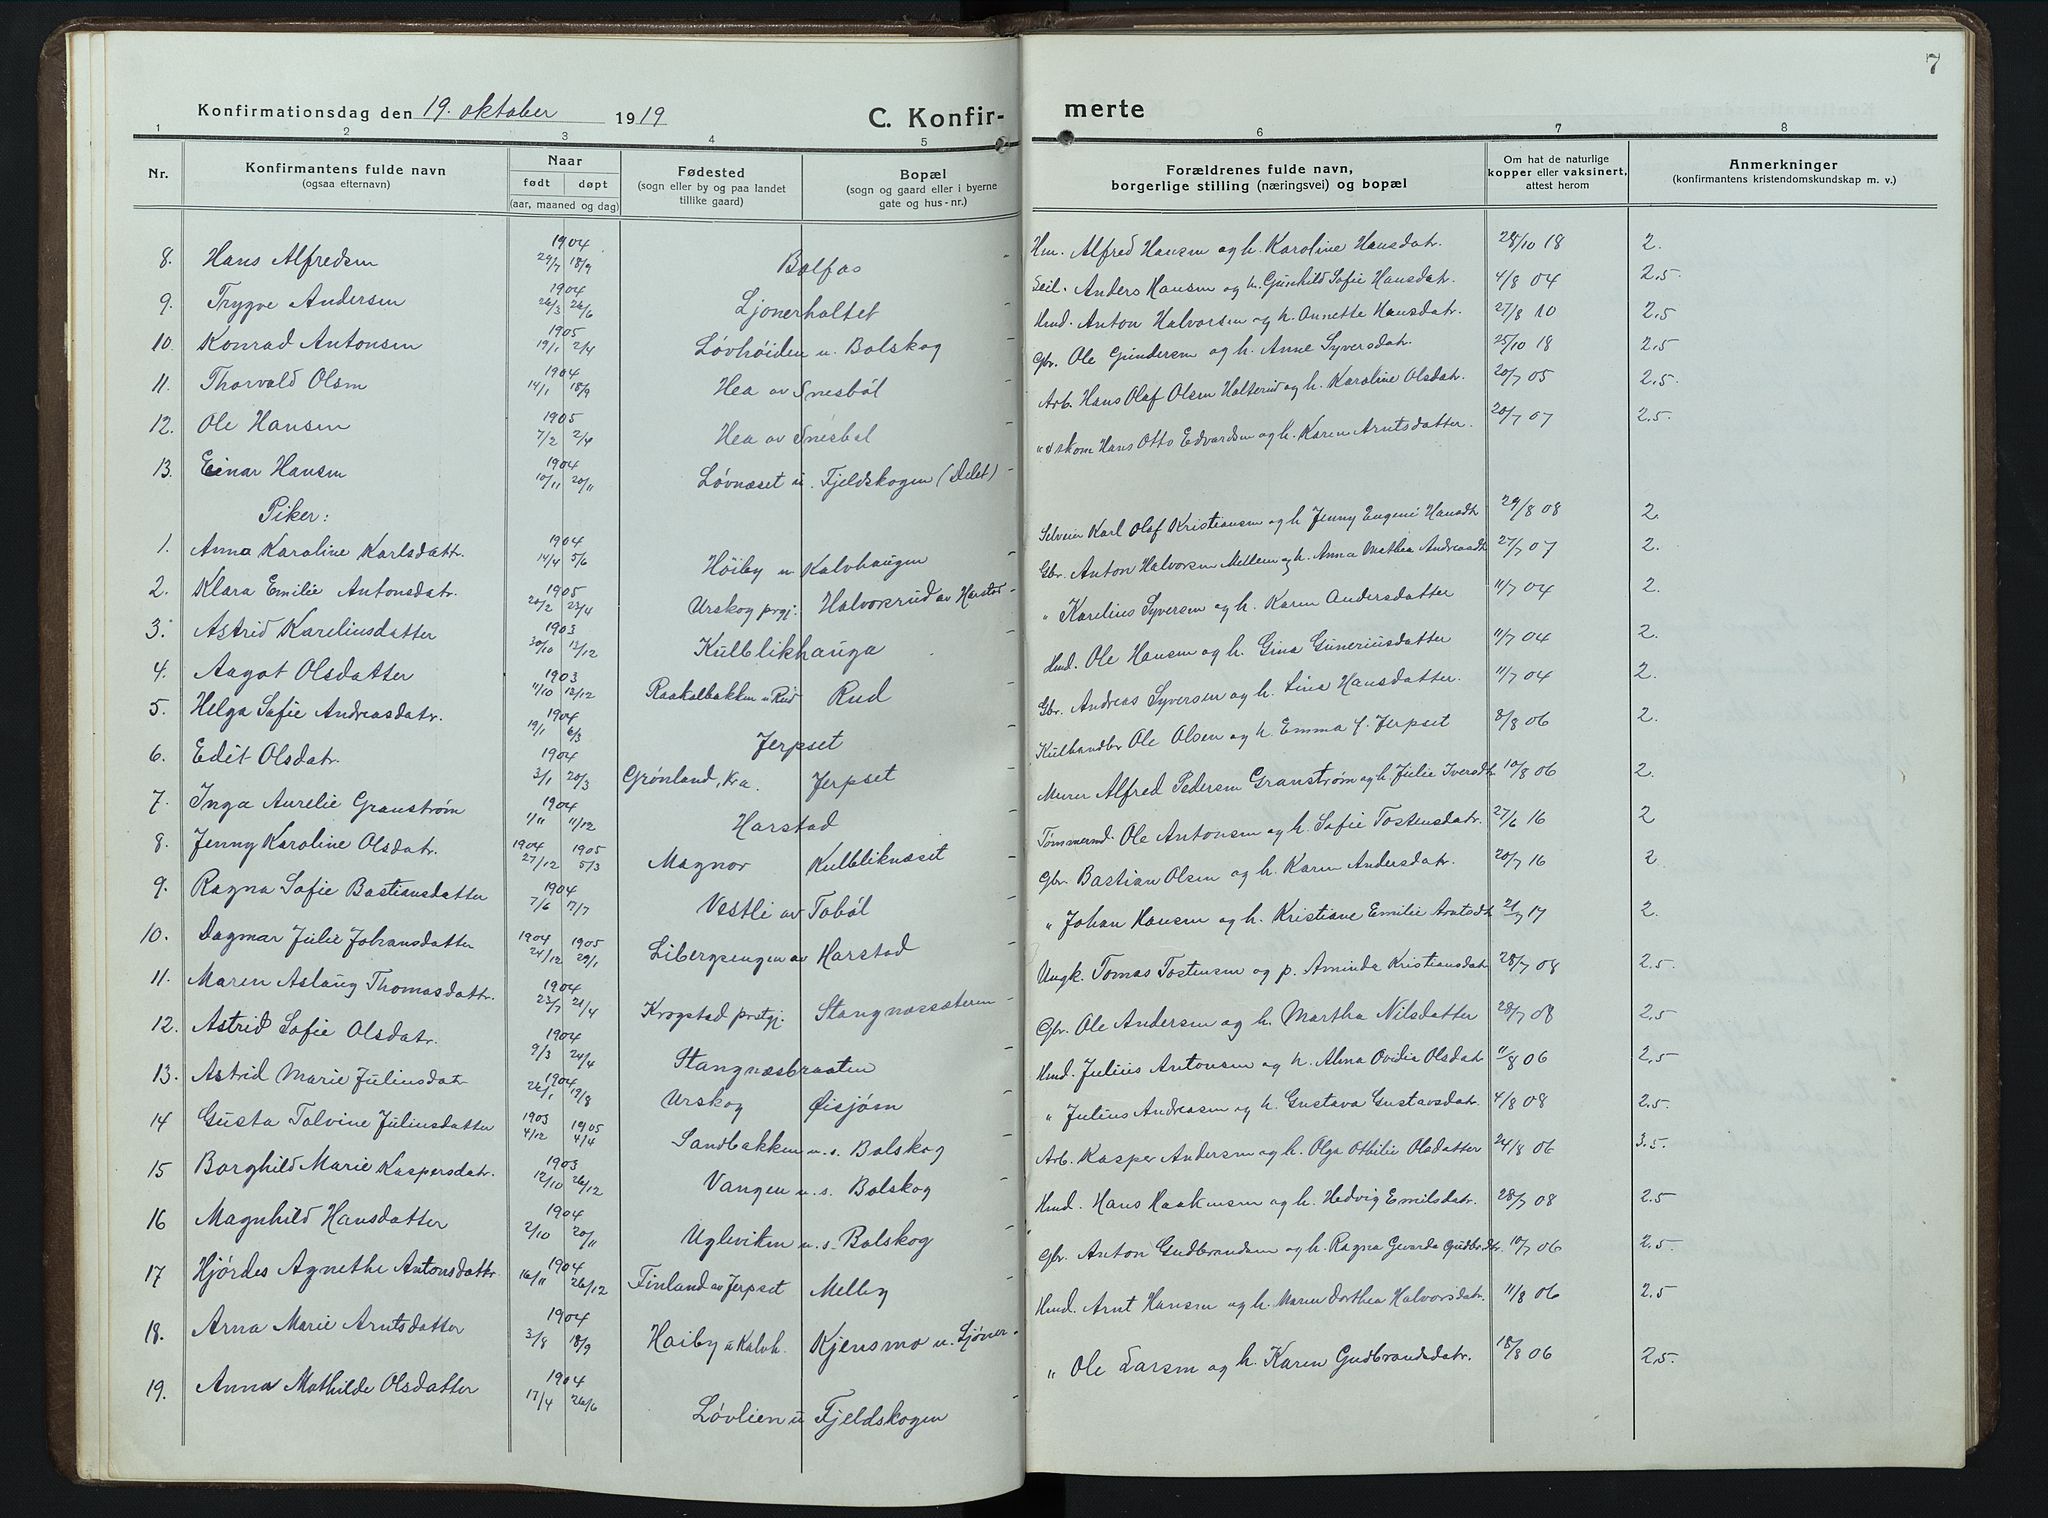 7
Konfirmationsdag den 19. oktober 1919 C. Konfir- merte
1 2 3 4 5 6 7 8
Nr. Konfirmantens fulde navn (ogsaa efternavn) Naar født døpt (aar, maaned og dag) Fødested (sogn eller by og paa landet tillike gaard) Bopæl (sogn og gaard eller i byerne gate og hus-nr.) Forældrenes fulde navn, borgerlige stilling (næringsvei) og bopæl Om hat de naturlige kopper eller vaksinert, attest herom Anmerkninger (konfirmantens kristendomskundskap m. v.)
8. Hans Alfredsen 1904 29/7 18/9 Bolfos - Hm. Alfred Hansen og h. Karoline Hansdatr. 28/10 18 2.
9. Trygve Andersen 1904 26/3 26/6 Ljonerholtet - Anders Hansen og h. Gunhild Sofie Hansdatr. 4/8 04 2.5.
10. Konrad Antonsen 1905 19/1 2/4 Løvhøiden u. Bolskog - Hmd. Anton Halvorsen og h. Annette Hansdatr. 27/8 10 2.5
11. Thorvald Olsen 1904 14/1 18/9 Hea av Snesbøl - Gbr. Ole Gundersen og h. Anne Syversdatr. 25/10 18 2.5
12. Ole Hansen 1905 7/2 2/4 Hea av Snesbøl - Arb. Hans Olaf Olsen Holterud og h. Karoline Olsdatr. 20/7 05 2.5.
13. Einar Hansen 1904 10/11 20/11 Løvnæset u. Fjeldskogen (Delet) - " skom Hans Otto Edvardsen og h. Karen Arntsdatter. 20/7 07 2.5.
Piker:
1. Anna Karoline Karlsdattr. 1904 14/4 5/6 Høiby u Kalvhaugen - Selveier Karl Olaf Kristiansen og h Jenny Eugeni Hansdtr 29/8 08 2.
2. Klara Emilie Antonsdatr. 1905 20/2 23/4 Urskog prgj: Halvorsrud av Harstad - Gbr. Anton Halvorsen Mellem og h. Anna Mathea Andreasdtr 27/7 07 2.
3. Astrid Kareliusdatter 1903 30/10 12/12 Kulblikhauga - " Karelius Syversen og h. Karen Andersdatter 11/7 04 2.
4. Aagot Olsdatter 1903 11/10 12/12 Raakalbakken u Rud Rud Hmd. Ole Hansen og h. Gina Guneriusdatter 11/7 04 2.
5. Helga Sofie Andreasdatr. 1904 19/1 6/3 Jerpset Gbr. Andreas Syversen og h. Lina Hansdatter. 11/7 04 2.
6. Edit Olsdatr. 1904 3/1 20/3 Grønland, Kra. Jerpset - Kulhandler Ole Olsen og h. Emma f. Jerpset 8/8 06 2.
7. Inga Aurelie Granstrøm 1904 1/11 11/12 Harstad - Murer Alfred Pedersen Granstrøm og h. Julie Iversdtr 10/8 06 2.
8. Jenny Karoline Olsdatr. 1904 27/12 1905 5/3 Magnor Kulbliknæset - Tømmermd. Ole Antonsen og h. Sofie Tostensdatr. 27/6 16 2
9. Ragna Sofie Bastiansdatter 1904 7/6 17/7 Vestli av Tobøl - Gbr Bastian Olsen og h. Karen Andersdatr. 20/7 16 2
10. Dagmar Julie Johansdatter 1904 24/12 1905 29/1 Libergsengen av Harstad - " Johan Hansen og h. Kristiane Emilie Arntsdtr 21/7 17 2.
11. Maren Aslaug Thomasdattr. 1904 23/7 21/4 Krogstad prstgj. Stangnæssæteren - Ungk. Tomas Tostensen og p. Aminda Kristiansdatr 28/7 08 2.5.
12. Astrid Sofie Olsdatr. 1904 9/3 24/4 Stangnæsbraaten - Gbr. Ole Andersen og h. Martha Nilsdatter 28/7 08 2.5
13. Astrid Marie Juliusdatr 1904 26/1 19/8 Urskog Øisjøen - Hmd. Julius Antonsen og h. Alma Ovidia Olsdatr 11/8 06 2.5
14 Gusta Tolvine Juliusdatter 1903 4/12 1905 4/4 Sandbakken u. s. Bolskog - " Julius Andreasen og h. Gustava Gustavsdatr. 4/8 08 2.5.
15 Borghild Marie Kaspersdatr. 1903 12/10 26/12 Vangen u. s. Bolskog - Arb. Kasper Andersen og h. Olga Othilie Olsdatter 24/8 06 3.5.
16 Magnhild Hansdatter 1904 2/10 20/11 Ugleviken u. s. Bolskog - Hmd. Hans Haakensen og h. Hedvig Emilsdatr. 28/7 08 2.5
17 Hjørdes Agnethe Antonsdattr. 1904 16/11 26/12 Finland av Jerpset Melby - Gbr. Anton Gudbrandsen og h. Ragna Gudbr.dtr. 10/7 06 2.5.
18. Arna Marie Arntsdatter 1904 3/8 18/9 Høiby u Kalvh. Kjensmo u. Ljøner - Hmd. Arnt Hansen og h. Maren Dorthea Halvorsdatr. 11/8 06 2.5
19. Anna Mathilde Olsdatter 1904 17/4 26/6 Løvlien u Fjeldskogen " Ole Larsen og h. Karen Gudbrandsdatr. 18/8 06 2.5.